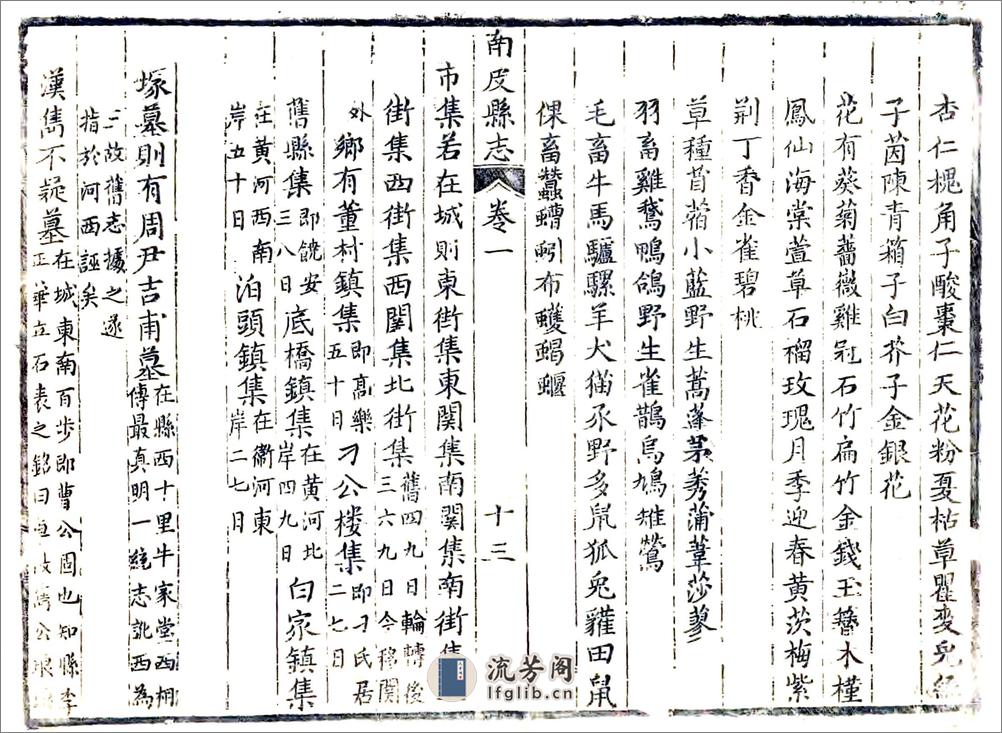 杏仁槐角子酸棗仁天花粉夏枯草瞿麥兔絲
子茵陳青箱子白芥子金銀花
花有葵菊薔薇雞冠石竹扁竹金錢玉簪木槿
鳳仙海棠萱草石榴玫瑰月季迎春黃茨梅紫
荆丁香金雀碧桃
草種苜蓿小藍野生蒿蓬茅莠蒲葦莎蓼
羽畜雞鵞鴨鴿野生雀鵲烏鳩雉鶯
毛畜牛馬驢騾羊犬猫豕野多鼠狐兔獾田鼠
倮畜蠶螬蚓布蠖蝎蝘
南皮縣志 卷一 十三
市集若在城則東街集東関集南関集南街集
街集西街集西関集北街集舊四九日輪轉後
三六九日今移関
外鄉有董村鎮集即高樂
五十日刁公楼集即刁氏居
二七日
舊縣集即饒安
三八日底橋鎮集在黄河北
岸四九日白家鎮集
在黄河西南
岸五十日泊頭鎮集在衞河東
岸二七日
塚墓則有周尹吉甫墓在縣西十里牛家堂西柵
傳最真明一統志訛西為
三故舊志據之遂
指於河西誣矣
漢雋不疑墓在城東南百步即曹公固也知縣李
正華立石表之銘曰
流芳阁
lfglib.cn